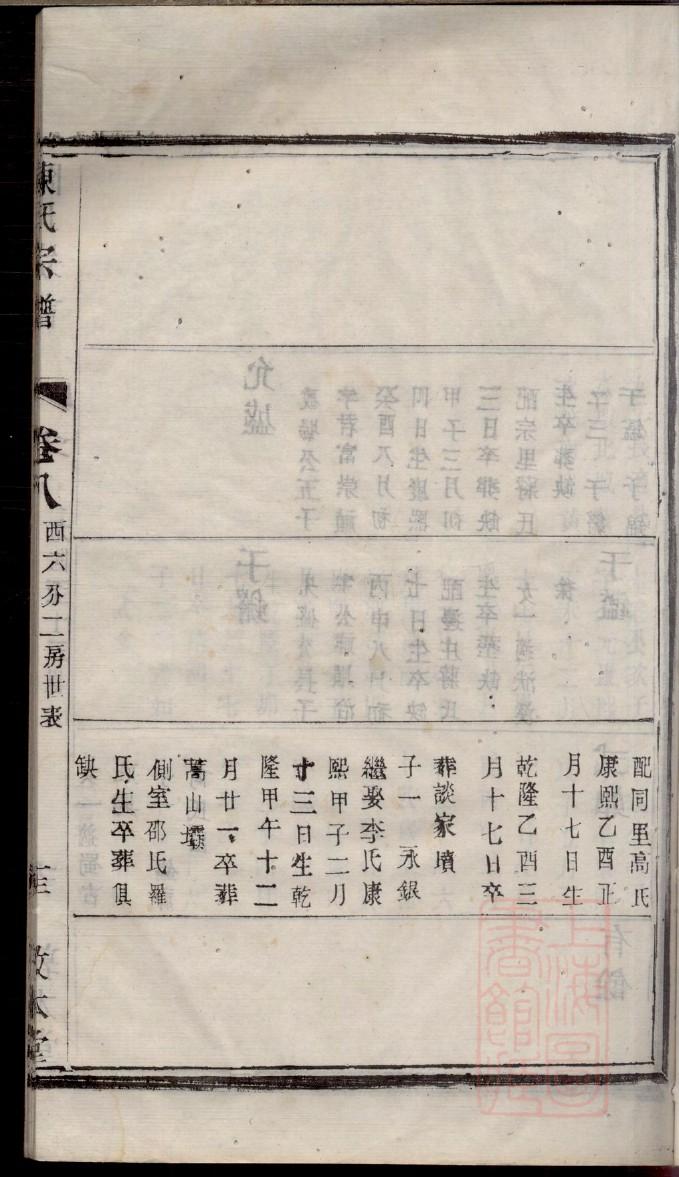 配同里高氏
康熙乙酉正
月十七日生
乾隆乙酉三
月十七日卒
葬談家墳
子一永銀
繼娶李氏康
熙甲子二月
十三日生乾
隆甲午十二
月廿一卒葬
蒿山壩
側室邵氏羅
氏生卒葬俱
缺
陳氏宗譜
卷八
西六分二房世表
敦本堂
上海圖書館藏